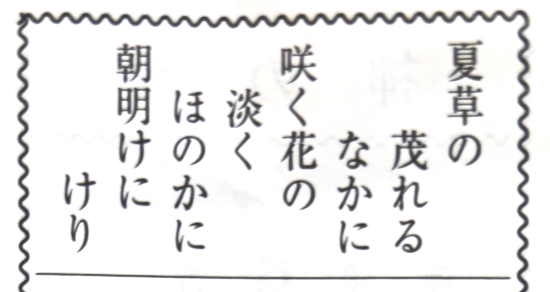 夏草の
茂れる
なかに
咲く花の
淡く
ほのかに
朝明けに
けり